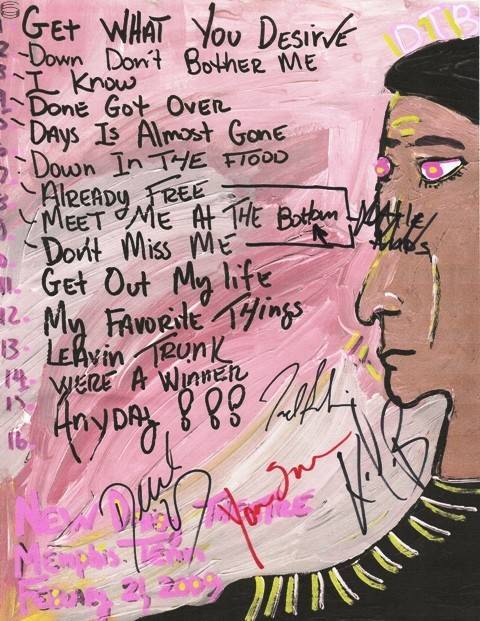 DTB
1 Get What You Desirve
2 -Down Don't Bother Me
3 -I Know
4 -Done Got Over
5 -Days Is Almost Gone
6 -Down In The Flood
7 -Already Free
8 -Meet Me At The Bottom
9 -Don't Miss Me
Get Out My life
11. My Favorite Things
12. Leavin Trunk
13. Were A Winner
14. Anyday !!!
16.
New Daisy Theatre
Memphis Tenn
February 21, 2009